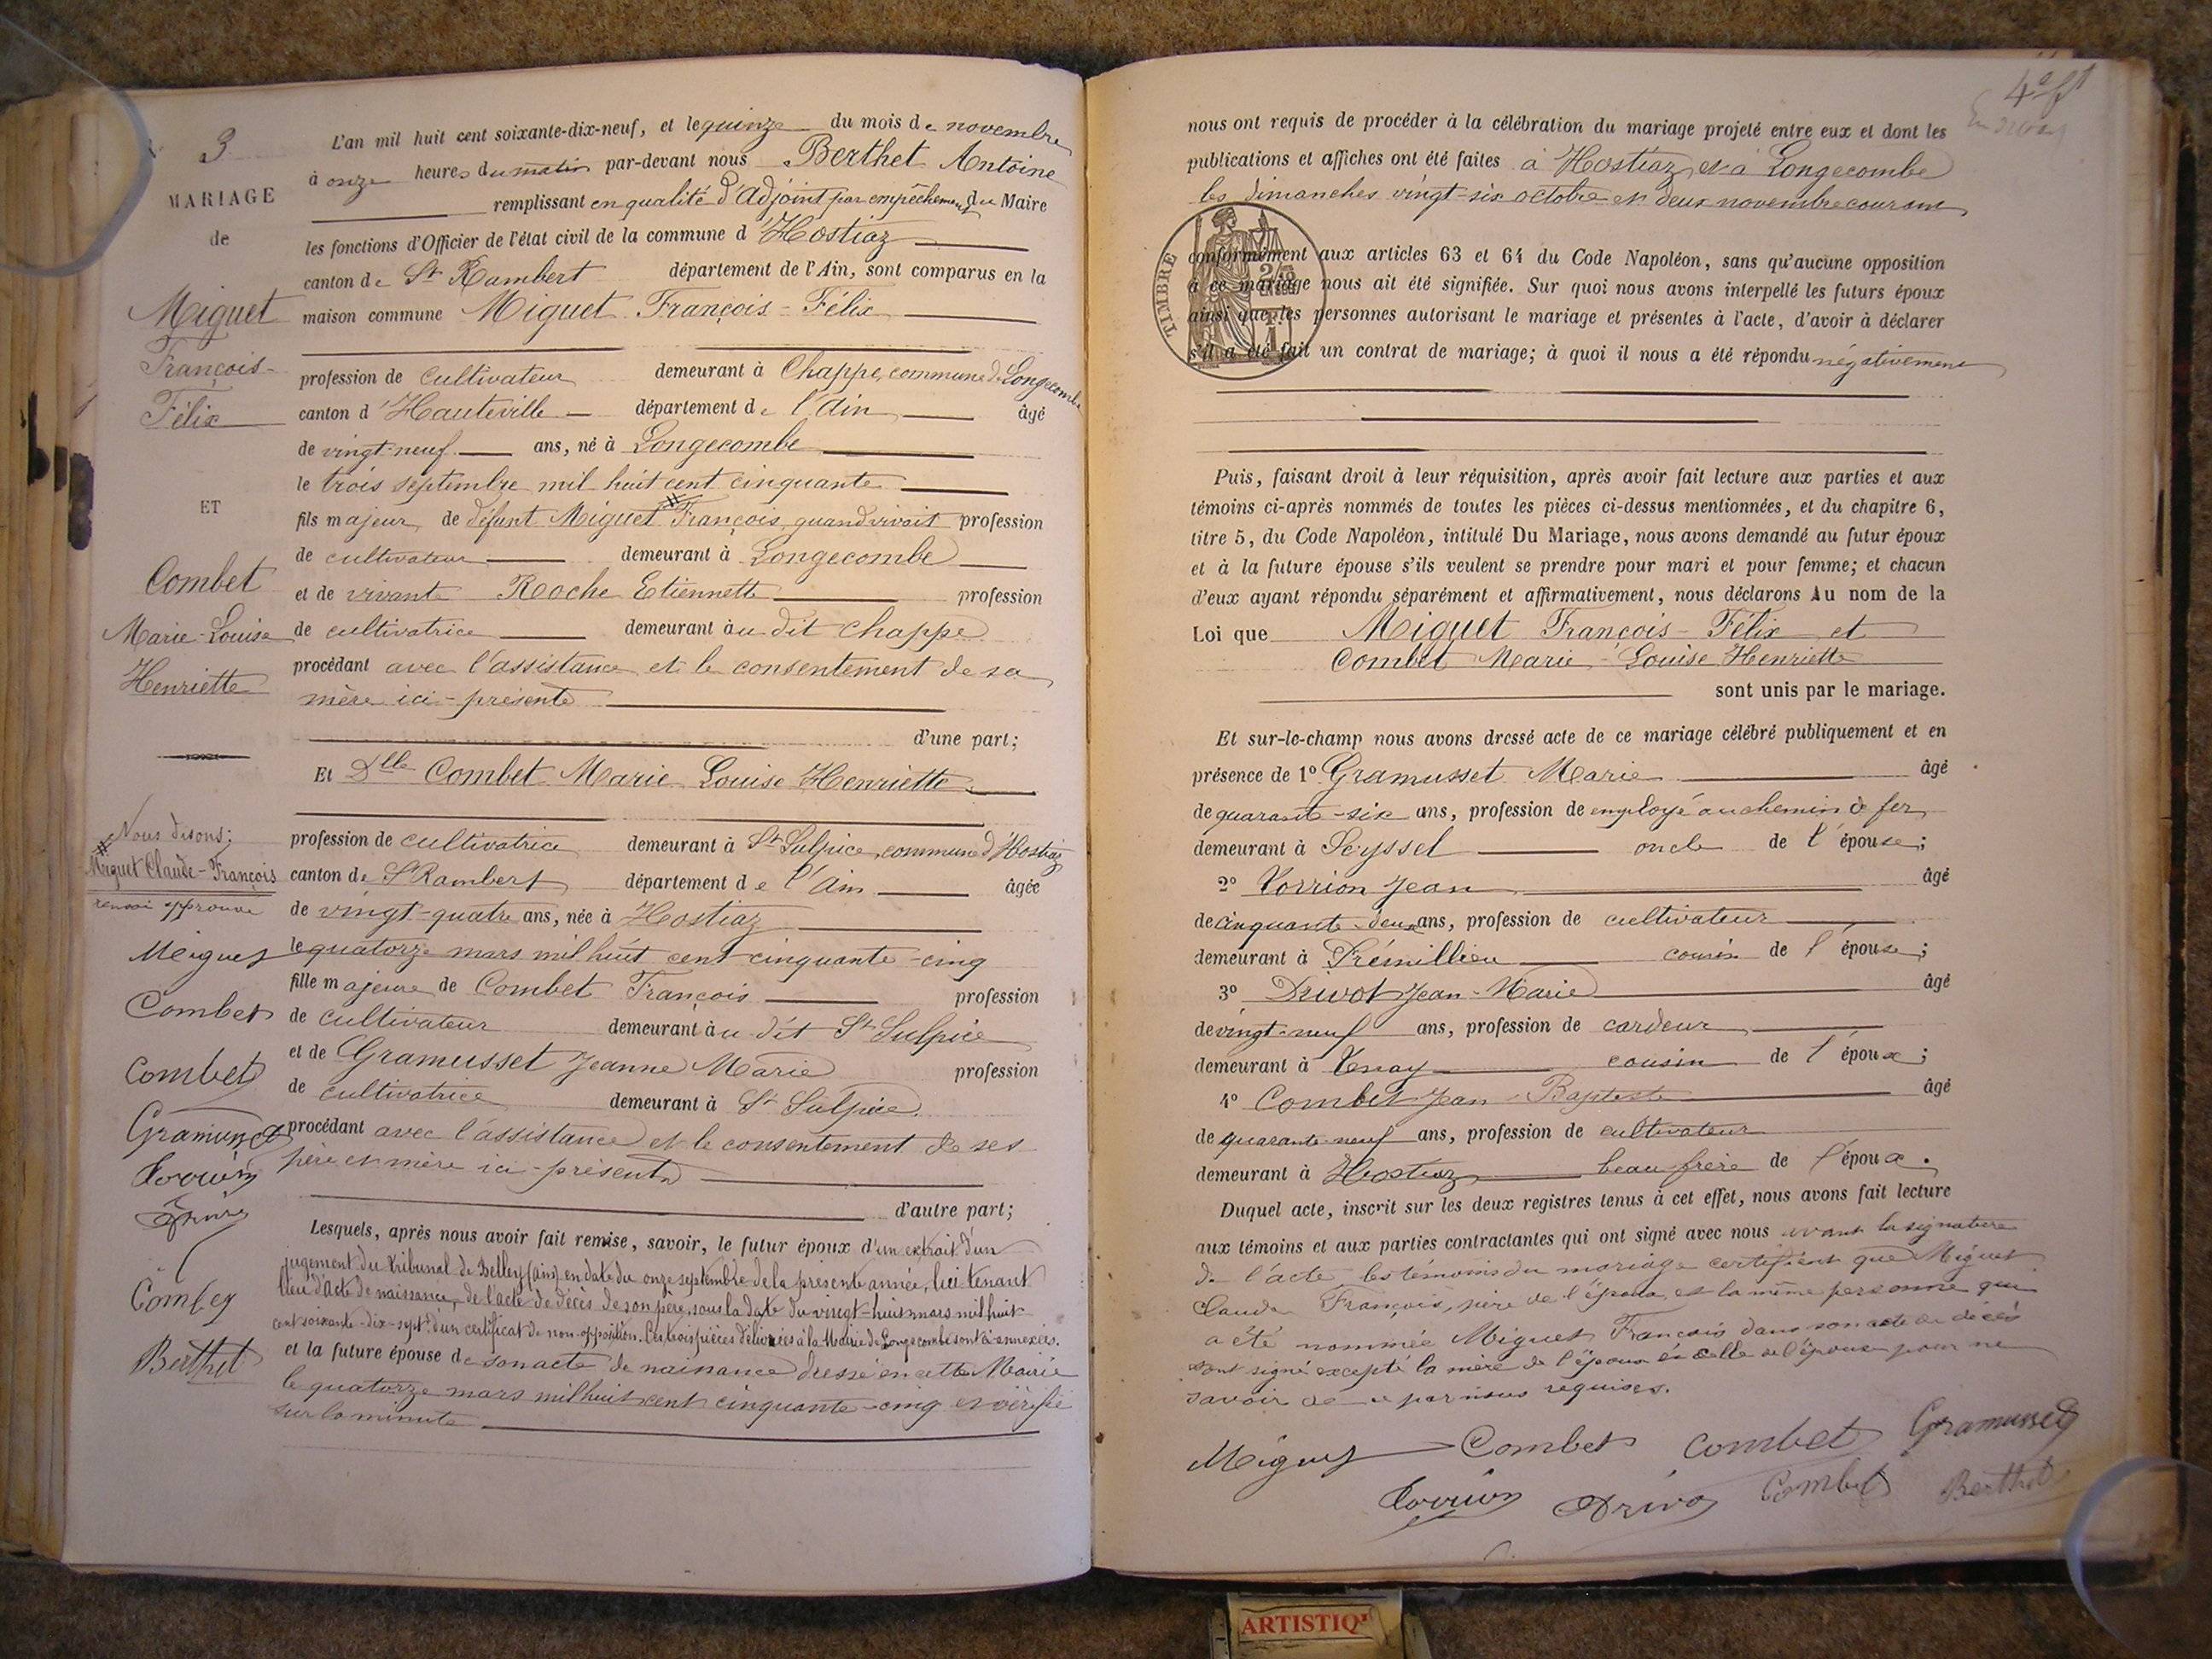 3
MARIAGE
de
Miguet
François-
Félix
ET
Combet
Marie-Louise
Henriette
Nous disons:
Miguet Claude-François
renvoi approuvé
Miguet
Combet
Combet
Gramusset
Vorrion
Drivo
Combet
Berthet
L'an mil huit cent soixante-dix-neuf, et le quinze du mois de novembre
à onze heures du matin par-devant nous Berthet Antoine
remplissant en qualité d'Adjoint par empêchement du Maire
les fonctions d'Officier de l'état civil de la commune d'Hostiaz
canton de St Rambert département de l'Ain, sont comparus en la
maison commune Miguet François-Félix
profession de cultivateur demeurant à Chappe, commune de Longecombe
canton d'Hauteville département de l'Ain âgé
de vingt-neuf ans, né à Longecombe
le trois septembre mil huit cent cinquante
fils majeur de défunt Miguet François, quand vivait profession
de cultivateur demeurant à Longecombe
et de vivante Roche Etiennette profession
de cultivatrice demeurant au dit Chappe
procédant avec l'assistance et le consentement de sa
mère ici-présente
d'une part;
Et Dlle Combet Marie Louise Henriette
profession de cultivatrice demeurant à St Sulpice, commune d'Hostiaz
canton de St Rambert département de l'Ain âgée
de vingt-quatre ans, née à Hostiaz
le quatorze mars mil huit cent cinquante-cinq
fille majeure de Combet François profession
de cultivateur demeurant au dit St Sulpice
et de Gramusset Jeanne Marie profession
de cultivatrice demeurant à St Sulpice
procédant avec l'assistance et le consentement de ses
père et mère ici-présents
d'autre part;
Lesquels, après nous avoir fait remise, savoir, le futur époux d'un extrait d'un
jugement du tribunal de Belley (Ain) en date du onze septembre de la présente année, lui tenant
lieu d'acte de naissance, de l'acte de décès de son père, sous la date du vingt-huit mars mil huit
cent soixante-dix-sept, d'un certificat de non-opposition. Ces trois pièces délivrées à la Mairie de Longecombe sont ci-annexées.
et la future épouse de son acte de naissance dressé en cette Mairie
le quatorze mars mil huit cent cinquante-cinq et vérifié
sur la minute
nous ont requis de procéder à la célébration du mariage projeté entre eux et dont les
publications et affiches ont été faites à Hostiaz et à Longecombe
les dimanches vingt-six octobre et deux novembre courant
TIMBRE
conformément aux articles 63 et 64 du Code Napoléon, sans qu'aucune opposition
à ce mariage nous ait été signifiée. Sur quoi nous avons interpellé les futurs époux
ainsi que les personnes autorisant le mariage et présentes à l'acte, d'avoir à déclarer
s'il a été fait un contrat de mariage; à quoi il nous a été répondu négativement
Puis, faisant droit à leur réquisition, après avoir fait lecture aux parties et aux
témoins ci-après nommés de toutes les pièces ci-dessus mentionnées, et du chapitre 6,
titre 5, du Code Napoléon, intitulé Du Mariage, nous avons demandé au futur époux
et à la future épouse s'ils veulent se prendre pour mari et pour femme; et chacun
d'eux ayant répondu séparément et affirmativement, nous déclarons Au nom de la
Loi que Miguet François-Félix et
Combet Marie-Louise Henriette
sont unis par le mariage.
Et sur-le-champ nous avons dressé acte de ce mariage célébré publiquement et en
présence de 1º Gramusset Marie âgé
de quarante-six ans, profession de employé au chemin de fer
demeurant à Seyssel oncle de l'épouse;
2º Vorrion Jean âgé
de cinquante-deux ans, profession de cultivateur
demeurant à Prémillieu cousin de l'épouse;
3º Drivot Jean-Marie âgé
de vingt-neuf ans, profession de cardeur
demeurant à Tenay cousin de l'époux;
4º Combet Jean-Baptiste âgé
de quarante-neuf ans, profession de cultivateur
demeurant à Hostiaz beau frère de l'époux.
Duquel acte, inscrit sur les deux registres tenus à cet effet, nous avons fait lecture
aux témoins et aux parties contractantes qui ont signé avec nous avant la signature
de l'acte, les témoins du mariage certifient que Miguet
Claude François, père de l'époux, est la même personne qui
a été nommée Miguet François dans son acte de décès
sont signé excepté la mère de l'époux et celle de l'épouse pour ne
savoir de ce par nous requises.
Miguet Combet Combet Gramusset
Vorrion Drivo Combet Berthet
ARTISTIQ